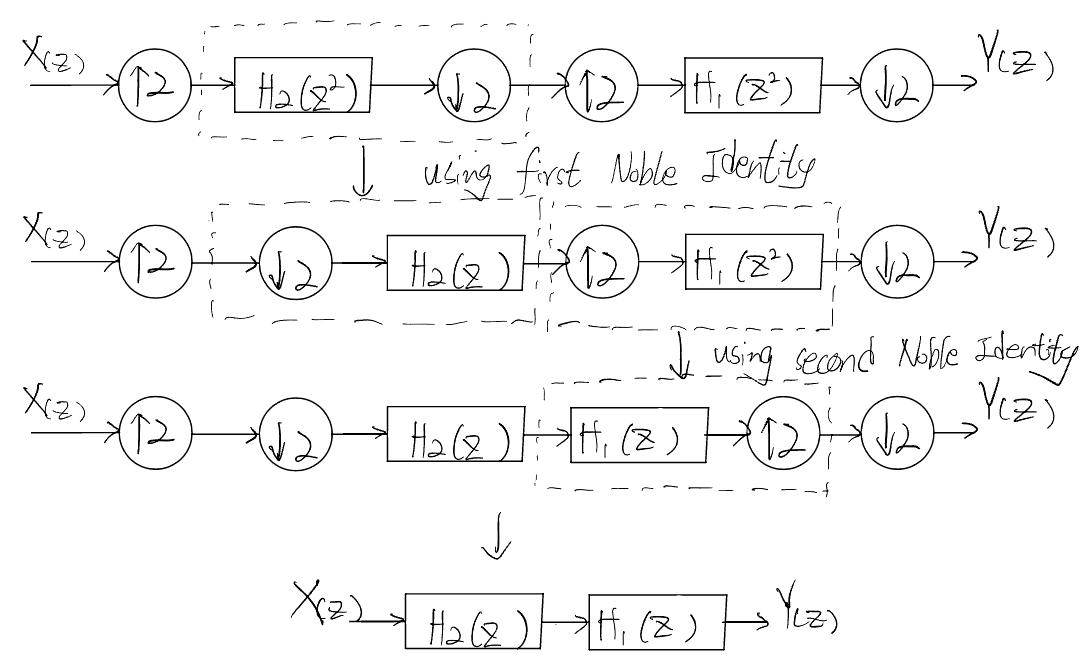 X(z) ↑2 H2(z²) ↓2 ↑2 H1(z²) ↓2 Y(z)
↓ using first Noble Identity
X(z) ↑2 ↓2 H2(z) ↑2 H1(z²) ↓2 Y(z)
↓ using second Noble Identity
X(z) ↑2 ↓2 H2(z) H1(z) ↑2 ↓2 Y(z)
↓
X(z) H2(z) H1(z) Y(z)